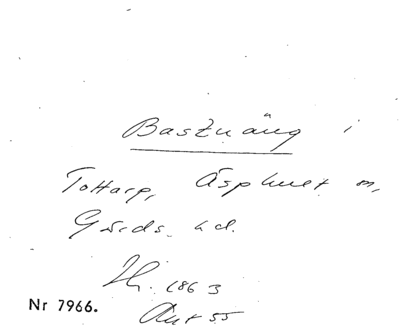 Bastuäng i
Tottarp, Äsphult sn,
Gärds hd.
1863
Nr 7966.
Akt 55